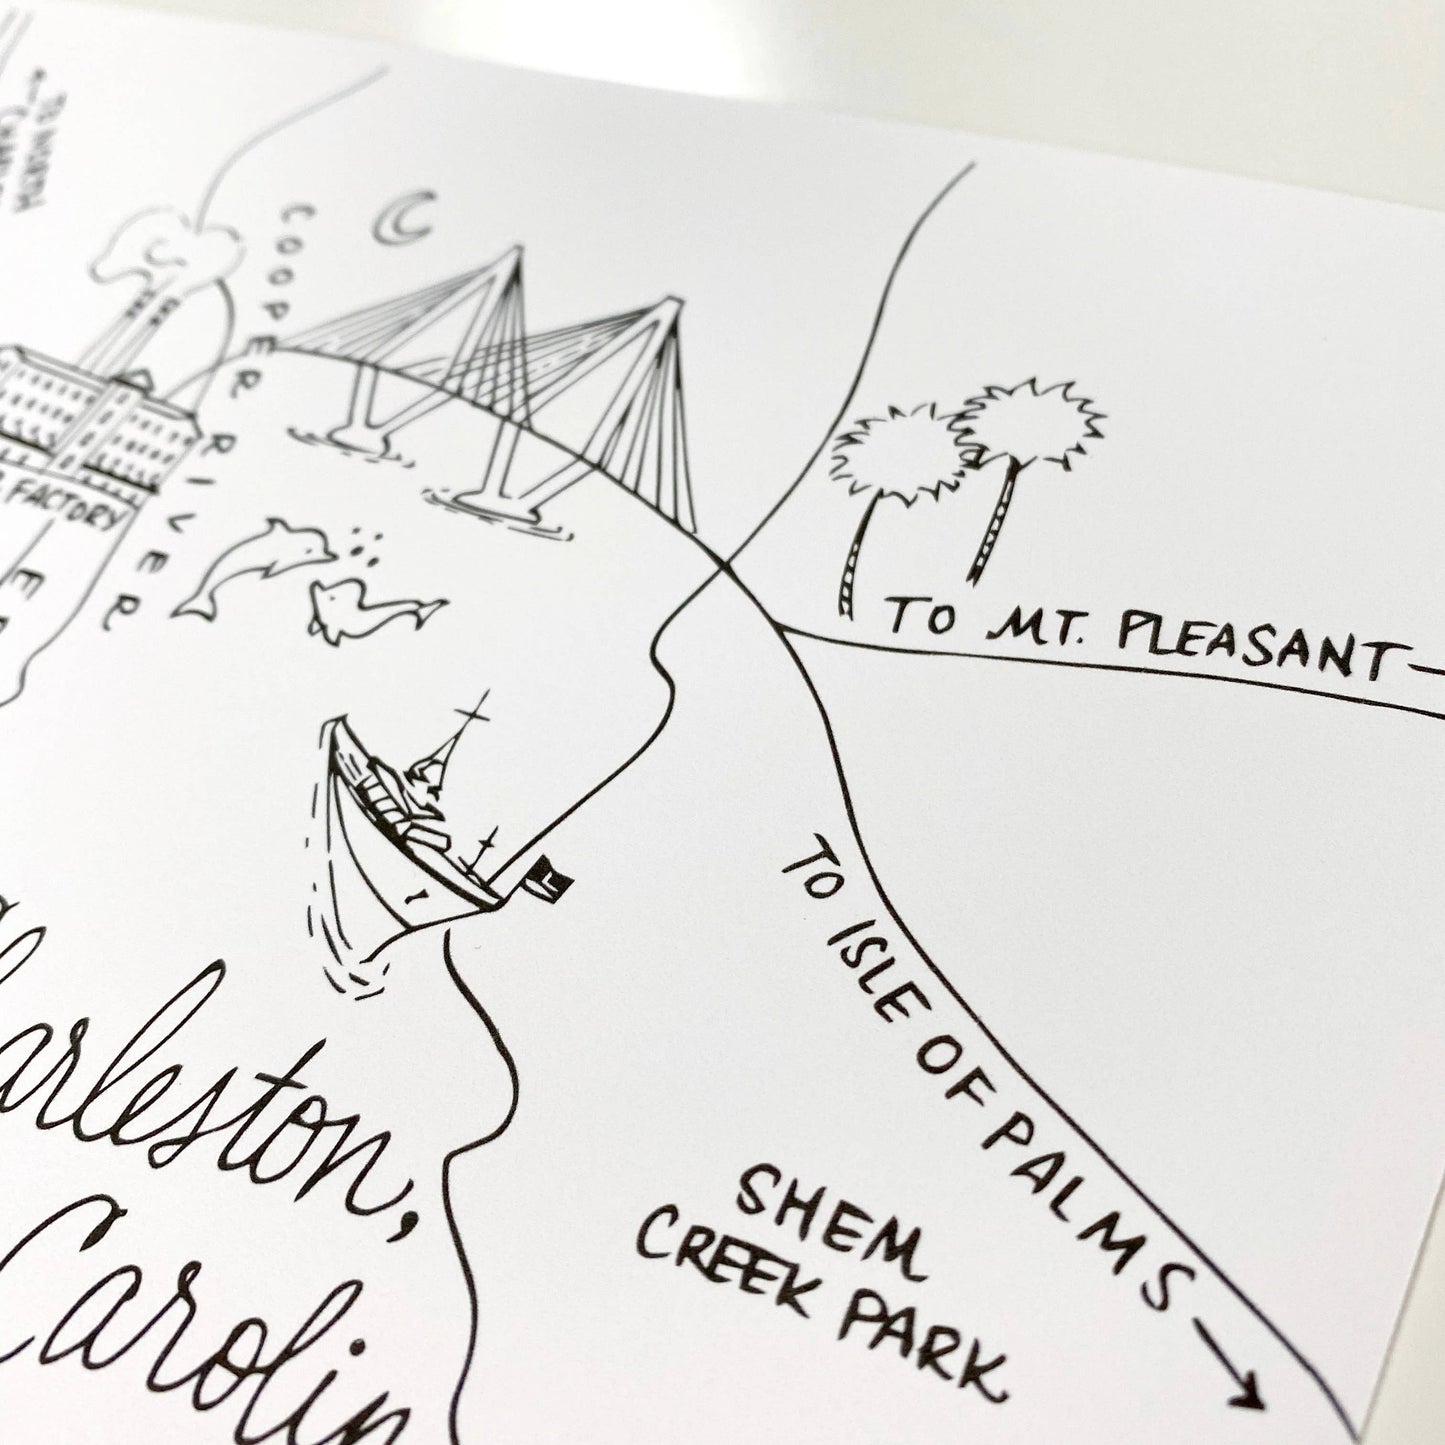 TO NORTH
COOPER RIVER
FACTORY
TO MT. PLEASANT
TO ISLE OF PALMS
SHEM
CREEK PARK